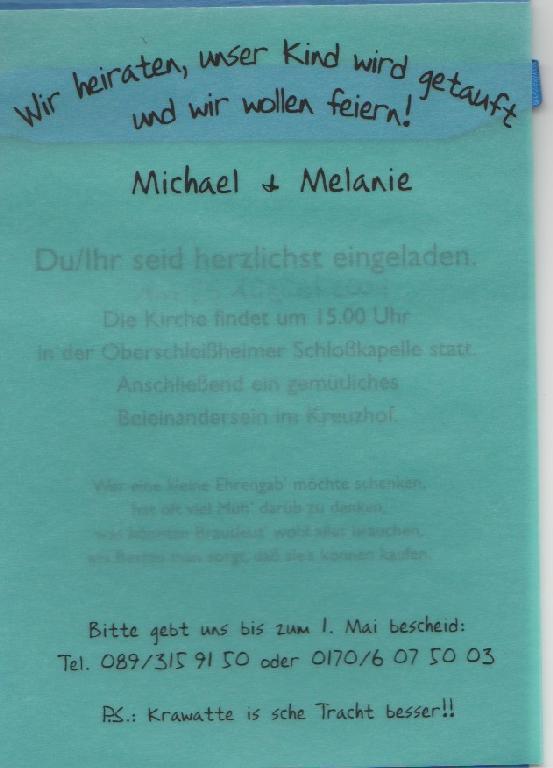 Wir heiraten, unser Kind wird getauft
und wir wollen feiern!
Michael & Melanie
Du/Ihr seid herzlichst eingeladen.
Die Kirche findet um 15.00 Uhr
in der Oberschleißheimer Schloßkapelle statt.
Anschließend ein gemütliches
Beieinandersein im Kreuzhof.
Wer eine kleine Ehrengab' möchte schenken,
hat oft viel Müh' darüb zu denken,
was könnten Brautleut' wohl alles brauchen,
am Besten man sorgt, daß sie's können kaufen.
Bitte gebt uns bis zum 1. Mai bescheid:
Tel. 089/315 91 50 oder 0170/6 07 50 03
P.S.: Krawatte is sche Tracht besser!!